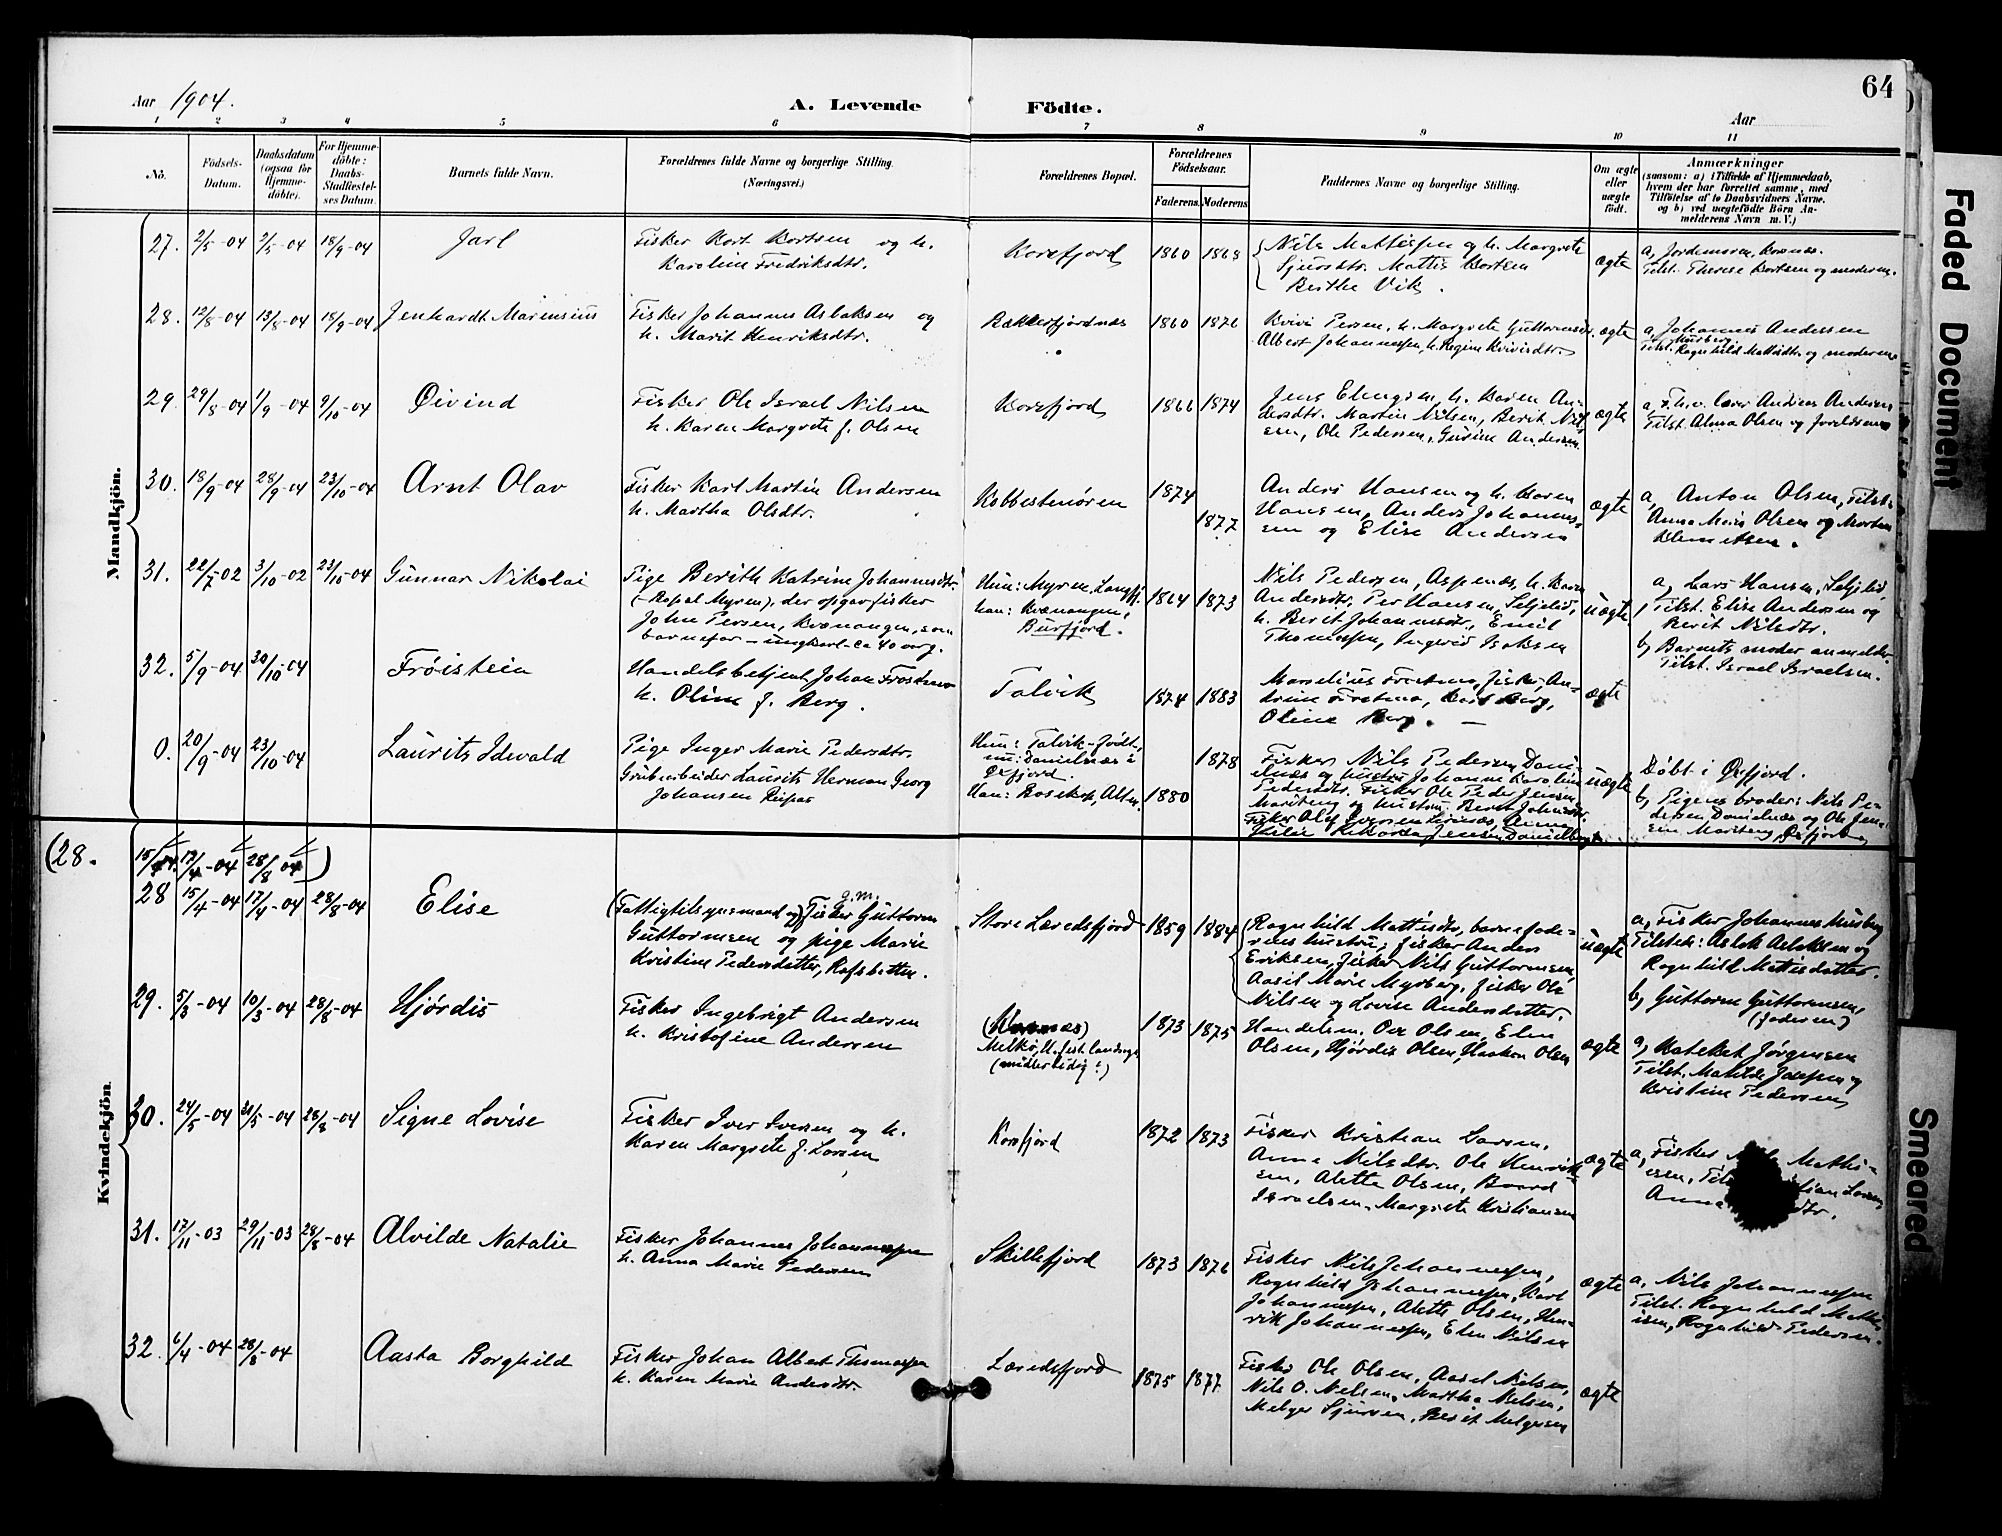 64
Aar 1904.
A. Levende Födte.
Aar
1 2 3 4 5 6 7 8 9 10 11
No.
Födsels-Datum.
Daabsdatum (ogsaa for Hjemme-døbte).
For Hjemme-døbte: Daabs-Stadfæstel-ses Datum.
Barnets fulde Navn.
Forældrenes fulde Navne og borgerlige Stilling. (Næringsvei.)
Forældrenes Bopæl.
Forældrenes Födselsaar.
Faderens. Moderens.
Faddernes Navne og borgerlige Stilling.
Om ægte eller uægte født.
Anmærkninger
(saasom: a) i Tilfælde af Hjemmedaab, hvem der har forrettet samme, med Tilföielse af to Daabsvidners Navne, og b) ved uægtefödte Börn An-melderens Navn m. V.)
Mandkjön.
27. 2/5-04 2/5-04 18/9-04 Jarl
Fisker Kort Kortsen og h.
Karoline Fredriksdtr.
Korsfjord 1860 1868
Nils Mattissen og h. Margrete
Sjursdtr. Mattis Kortsen
Berthe Vik.
ægte
a, Jordemoren, Kornæs.
Tilst. Therese Kortsen og moderen.
28. 12/8-04 13/8-04 18/9-04 Jenhardt Marinsius
Fisker Johannes Aslaksen og
h. Marit Henriksdtr.
Rakkerfjordnæs 1860 1876
Kvivi Persen, h. Margrete Guttormsdtr.
Albert Johannessen, h. Regine Kvivisdtr.
ægte
a, Johannes Andersen
Murberg
Tilst. Ragnhild Mattisdtr. og moderen
29. 29/8-04 1/9-04 9/10-04 Øivind
Fisker Ole Israel Nilsen
h. Karen Margrete f. Olsen
Korsfjord 1866 1874
Jens Elingsen, h. Karen An-
dersdtr. Martin Nilsen, Berit Nil-
sen, Ole Pedersen, Gurine Andersen
ægte
Tilst. Alma Olsen og forældrene
30. 18/9-04 28/9-04 23/10-04 Arnt Olav
Fisker Karl Martin Andersen
h. Martha Olsdtr.
Kobbestenøren 1874 1877
Anders Hansen og h. Karen
Hansen, Anders Johannes-
sen og Elise Andersen
ægte
a, Anton Olsen, Tilst.
Anna Marie Olsen og Morten
Klemetsen.
31. 22/7-02 3/10-02 23/10-04 Gunnar Nikolai
Pige Berith Katrine Johannesdtr.
(Bopæl Myren), der opgav fisker
John Persen, Kvænangen, som
barnefar – ungkarl – ca 40 aarg.
Hun: Myren, Langfj.
han: Kvænangen,
Burfjord.
1864 1873
Nils Pedersen, Aspenæs, h. Karen
Andersdtr. Per Hansen, Seljelid,
h. Berit Johannesdtr., Emil
Thomassen, Ingerid Isaksen
uægte
a, Lars Hansen, Seljelid,
Tilst. Elise Andersen og
Berit Nilsdtr.
b, Barnets moder anmelder.
Tilst. Israel Israelsen.
32. 5/9-04 30/10-04 Frøistein
Handelsbetjent Johan Frostmo
h. Oline f. Berg.
Talvik 1874 1883
Marselius Frostmo, fisker, An-
drine Frostmo, Carl Berg,
Oline Berg. –
ægte
0. 20/9-04 23/10-04 Laurits Idevald
Pige Inger Marie Pedersdtr.
Grubearbeider Laurits Herman Georg
Johansen Reipas
Hun: Talvik-født,
nu: Danielnæs i
Øxfjord.
Han: Bosekop, Alten. 1880 1878
Fisker Nils Pedersen Dani-
elnæs og hustru Johanne Karoline
Pedersdtr. Fisker Ole Peder Jensen
Mariteng og hustru Berit Johnsdtr.
uægte
Døbt i Øxfjord.
b, Pigens broder: Nils Pe-
dersen Danielnæs og Ole Jen-
sen Mariteng, Øxfjord
Kvindekjön.
(28. 15/4-04 17/4-04 28/8-04)
28 15/4-04 17/4-04 28/8-04 Elise
g.m.
(Fattigtilsynsmand og) Fisker Guttorm
Guttormsen og pige Marie
Kristine Pedersdatter, Rafsbotten.
Store Lerredsfjord 1859 1884
Ragnhild Mattisdtr, barnefade-
rens hustru, fisker Anders
Eriksen, fisker Nils Guttormsen,
Aasil Marie Myrberg, fisker Ole
Nilsen og Lovise Andersdatter.
uægte
a, Fisker Johannes Murberg
Tilstede: Aslak Aslaksen og
Ragnhild Mattisdatter.
b, Guttorm Guttormsen,
(faderen)
29. 5/3-04 10/3-04 28/8-04 Hjørdis
Fisker Ingebrigt Andersen
h. Kristofine Andersen
Melkø, H.fest landsogn
(midlertidig:)
1873 1875
Handelsm. Ove Olsen, Elen
Olsen, Hjørdis Olsen, Haakon Olsen
ægte
a, Kateket Jørgensen
Tilst. Matilde Josefsen og
Kristine Pedersen
30. 24/5-04 28/8-04 Signe Lovise
Fisker Iver Iversen og h.
Karen Margrete f. Larsen
Korsfjord 1872 1873
Fisker Kristian Larsen,
Anne Nilsdtr. Ole Henrik-
sen, Alette Olsen, Baard
Israelsen, Margrete Kristiansen
ægte
a, Fisker Mathi-
esen, Larsen
Anna
31. 17/11-03 29/11-03 28/8-04 Alvilde Natalie
Fisker Johannes Johannessen
h. Anna Marie Pedersen
Skillefjord 1873 1876
Fisker Nils Johannessen,
Ragnhild Johannessen, Karl
Johannessen, Alette Olsen, Hen-
rik Johannessen, Elen Nilsen
ægte
a, Nils Johannessen
Tilst. Ragnhild Matti-
isen, Ragnhild Pedersen.
32. 6/4-04 28/8-04 Aasta Borghild
Fisker Johan Albert Thomassen
h. Karen Marie Andersdtr.
Lerredsfjord 1875 1877.
Fisker Ole Olsen, Aasel Nilsen,
Nils O. Nilsen, Martha Nilsen,
Melger Sjursen, Berit Melgersen
ægte
Faded Document
Smeared